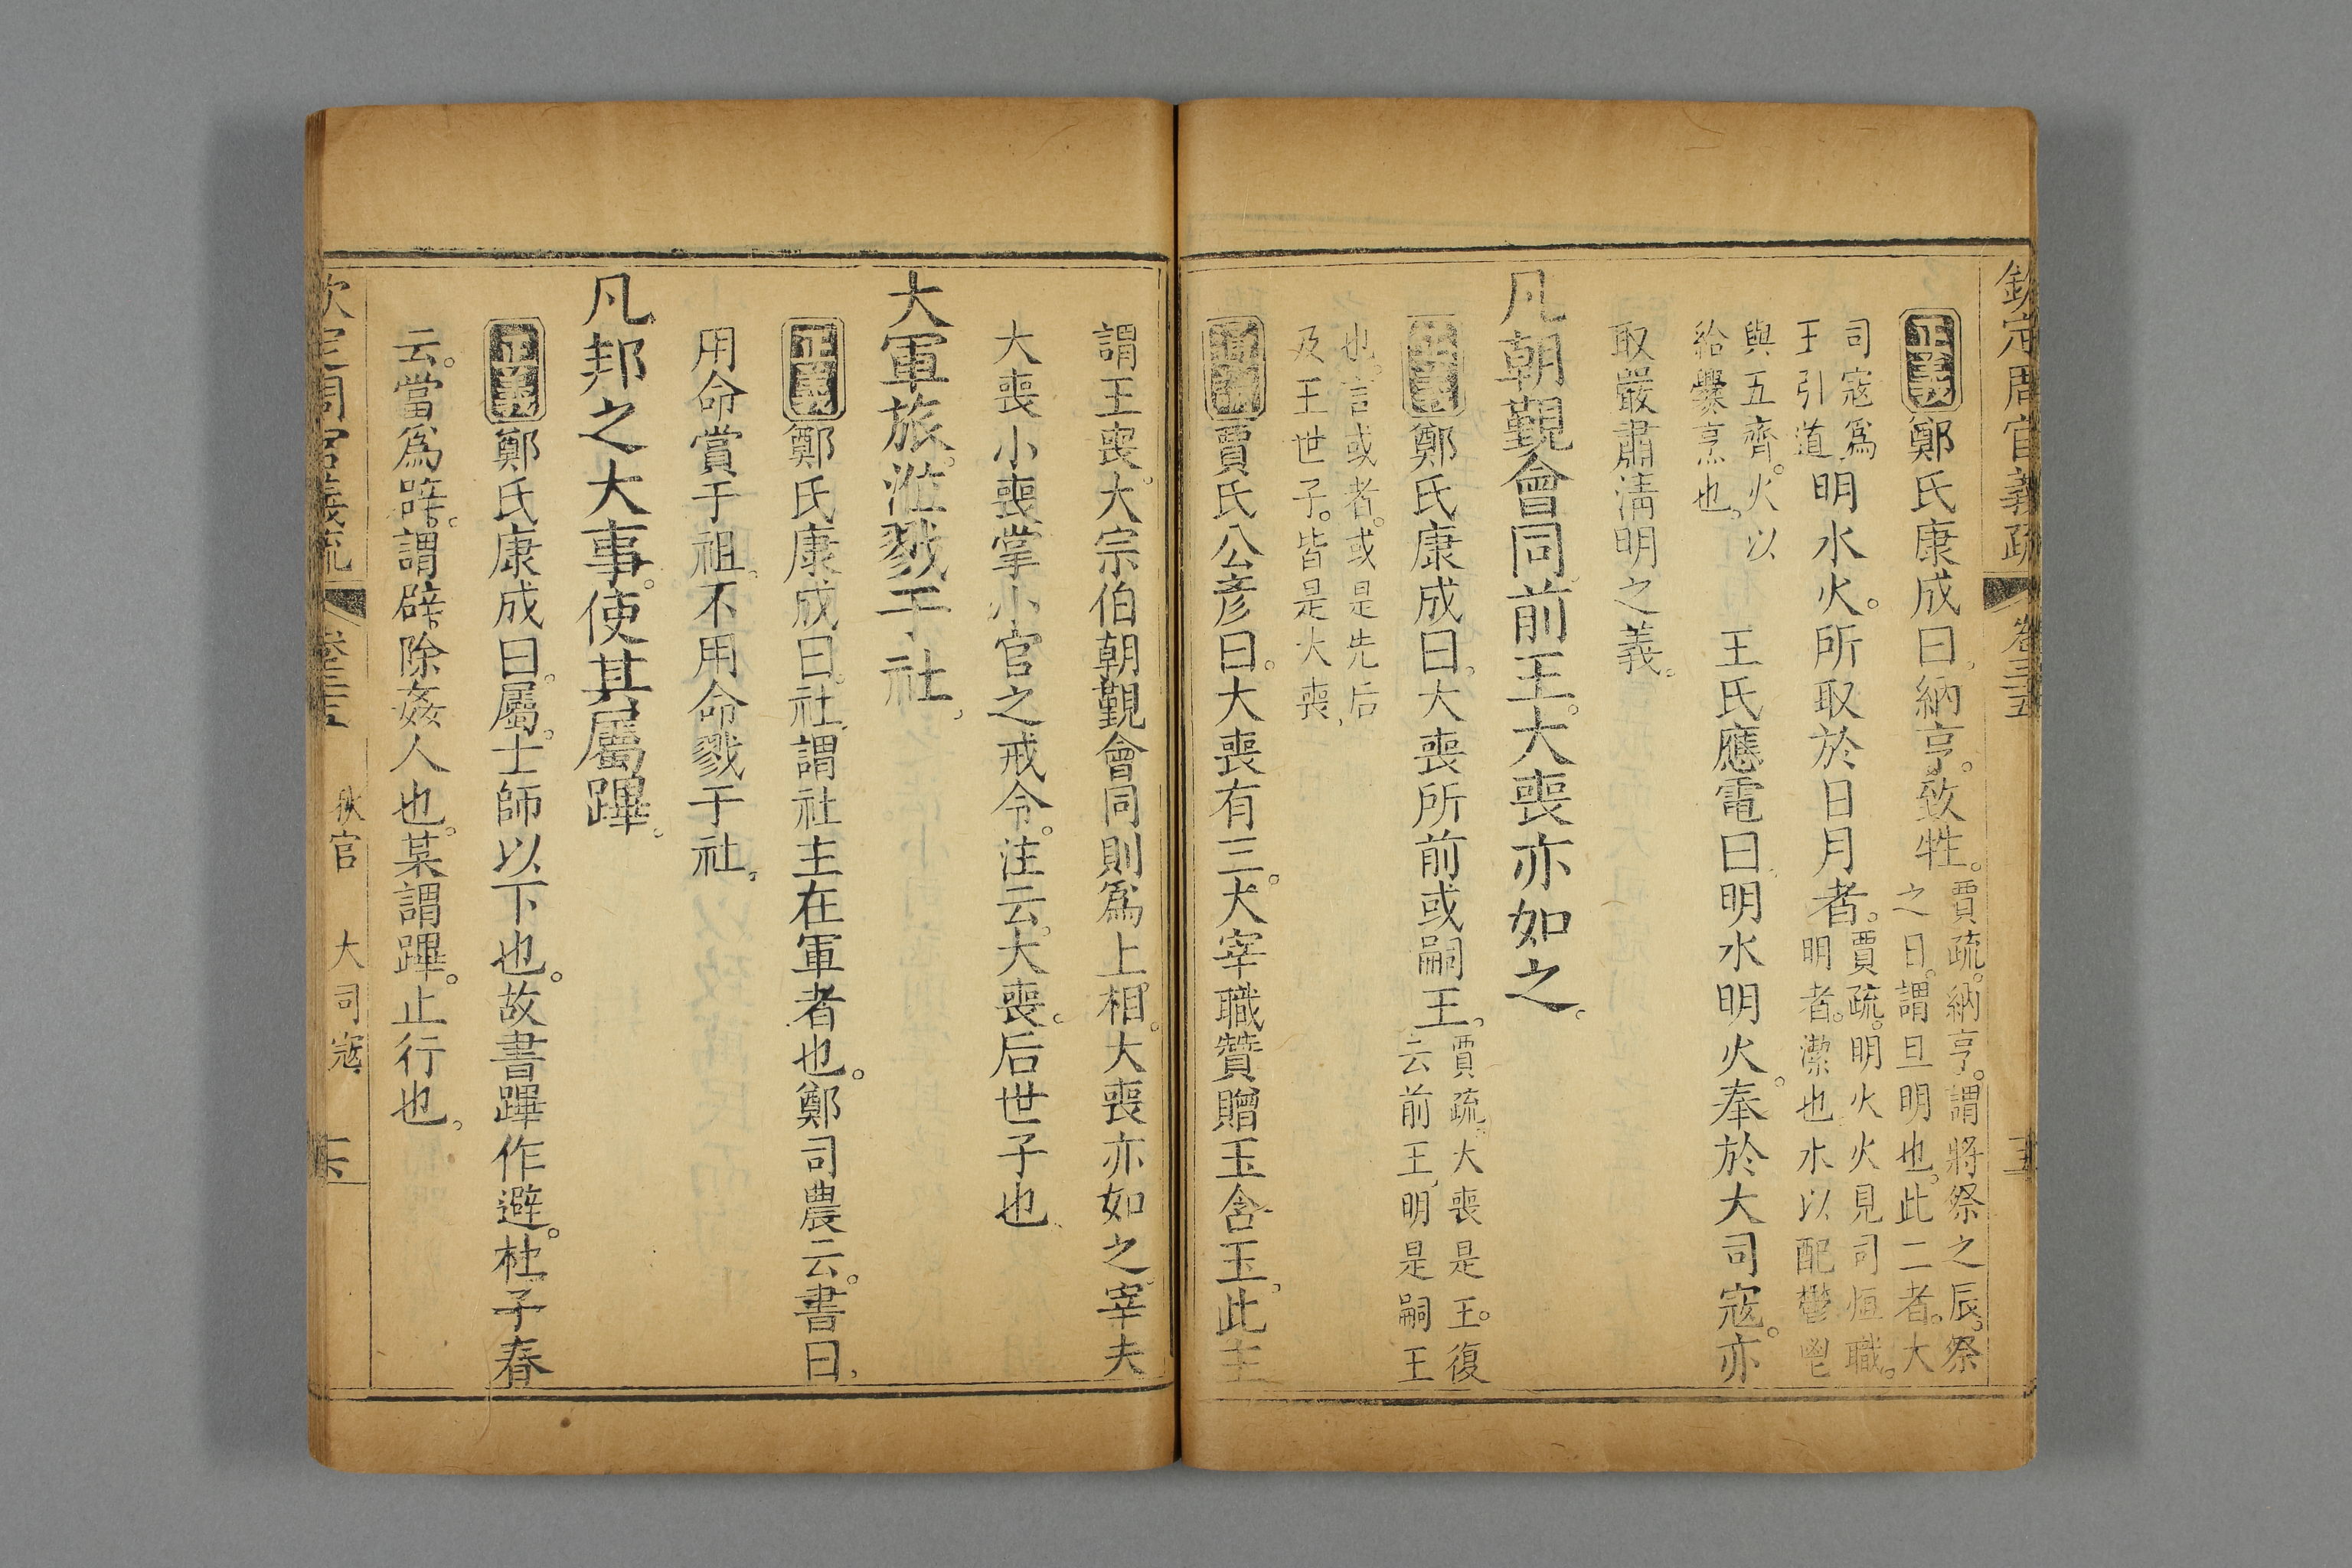 欽定周官義疏 卷三十五
正義鄭氏康成曰納亨。致牲。賈疏。納亨。謂將祭之辰。祭之日。謂旦明也。此二者。大
司寇爲王引道明水火。所取於日月者。賈疏。明火火見司烜職。明者。潔也水以配鬱鬯
與五齊。火以給爨亨也。 王氏應電曰明水明火。奉於大司寇。亦
取嚴肅清明之義。
凡朝覲會同前王。大喪亦如之。
正義鄭氏康成曰。大喪所前或嗣王。賈疏。大喪是王。復云前王。明是嗣王
也。言或者。或是先后及王世子。皆是大喪。
通論賈氏公彥曰。大喪有三。大宰職贊贈玉含玉。此主
謂王喪。大宗伯朝覲會同則爲上相。大喪亦如之宰夫
大喪小喪掌小官之戒令。注云。大喪。后世子也
大軍旅。涖戮于社。
正義鄭氏康成曰。社謂社主在軍者也。鄭司農云。書曰。
用命賞于祖。不用命戮于社。
凡邦之大事。使其屬蹕。
正義鄭氏康成曰。屬。士師以下也。故書蹕作避。杜子春
云。當爲辟。謂辟除姦人也。某謂蹕。止行也。
欽定周官義疏 卷三十五 秋官 大司寇